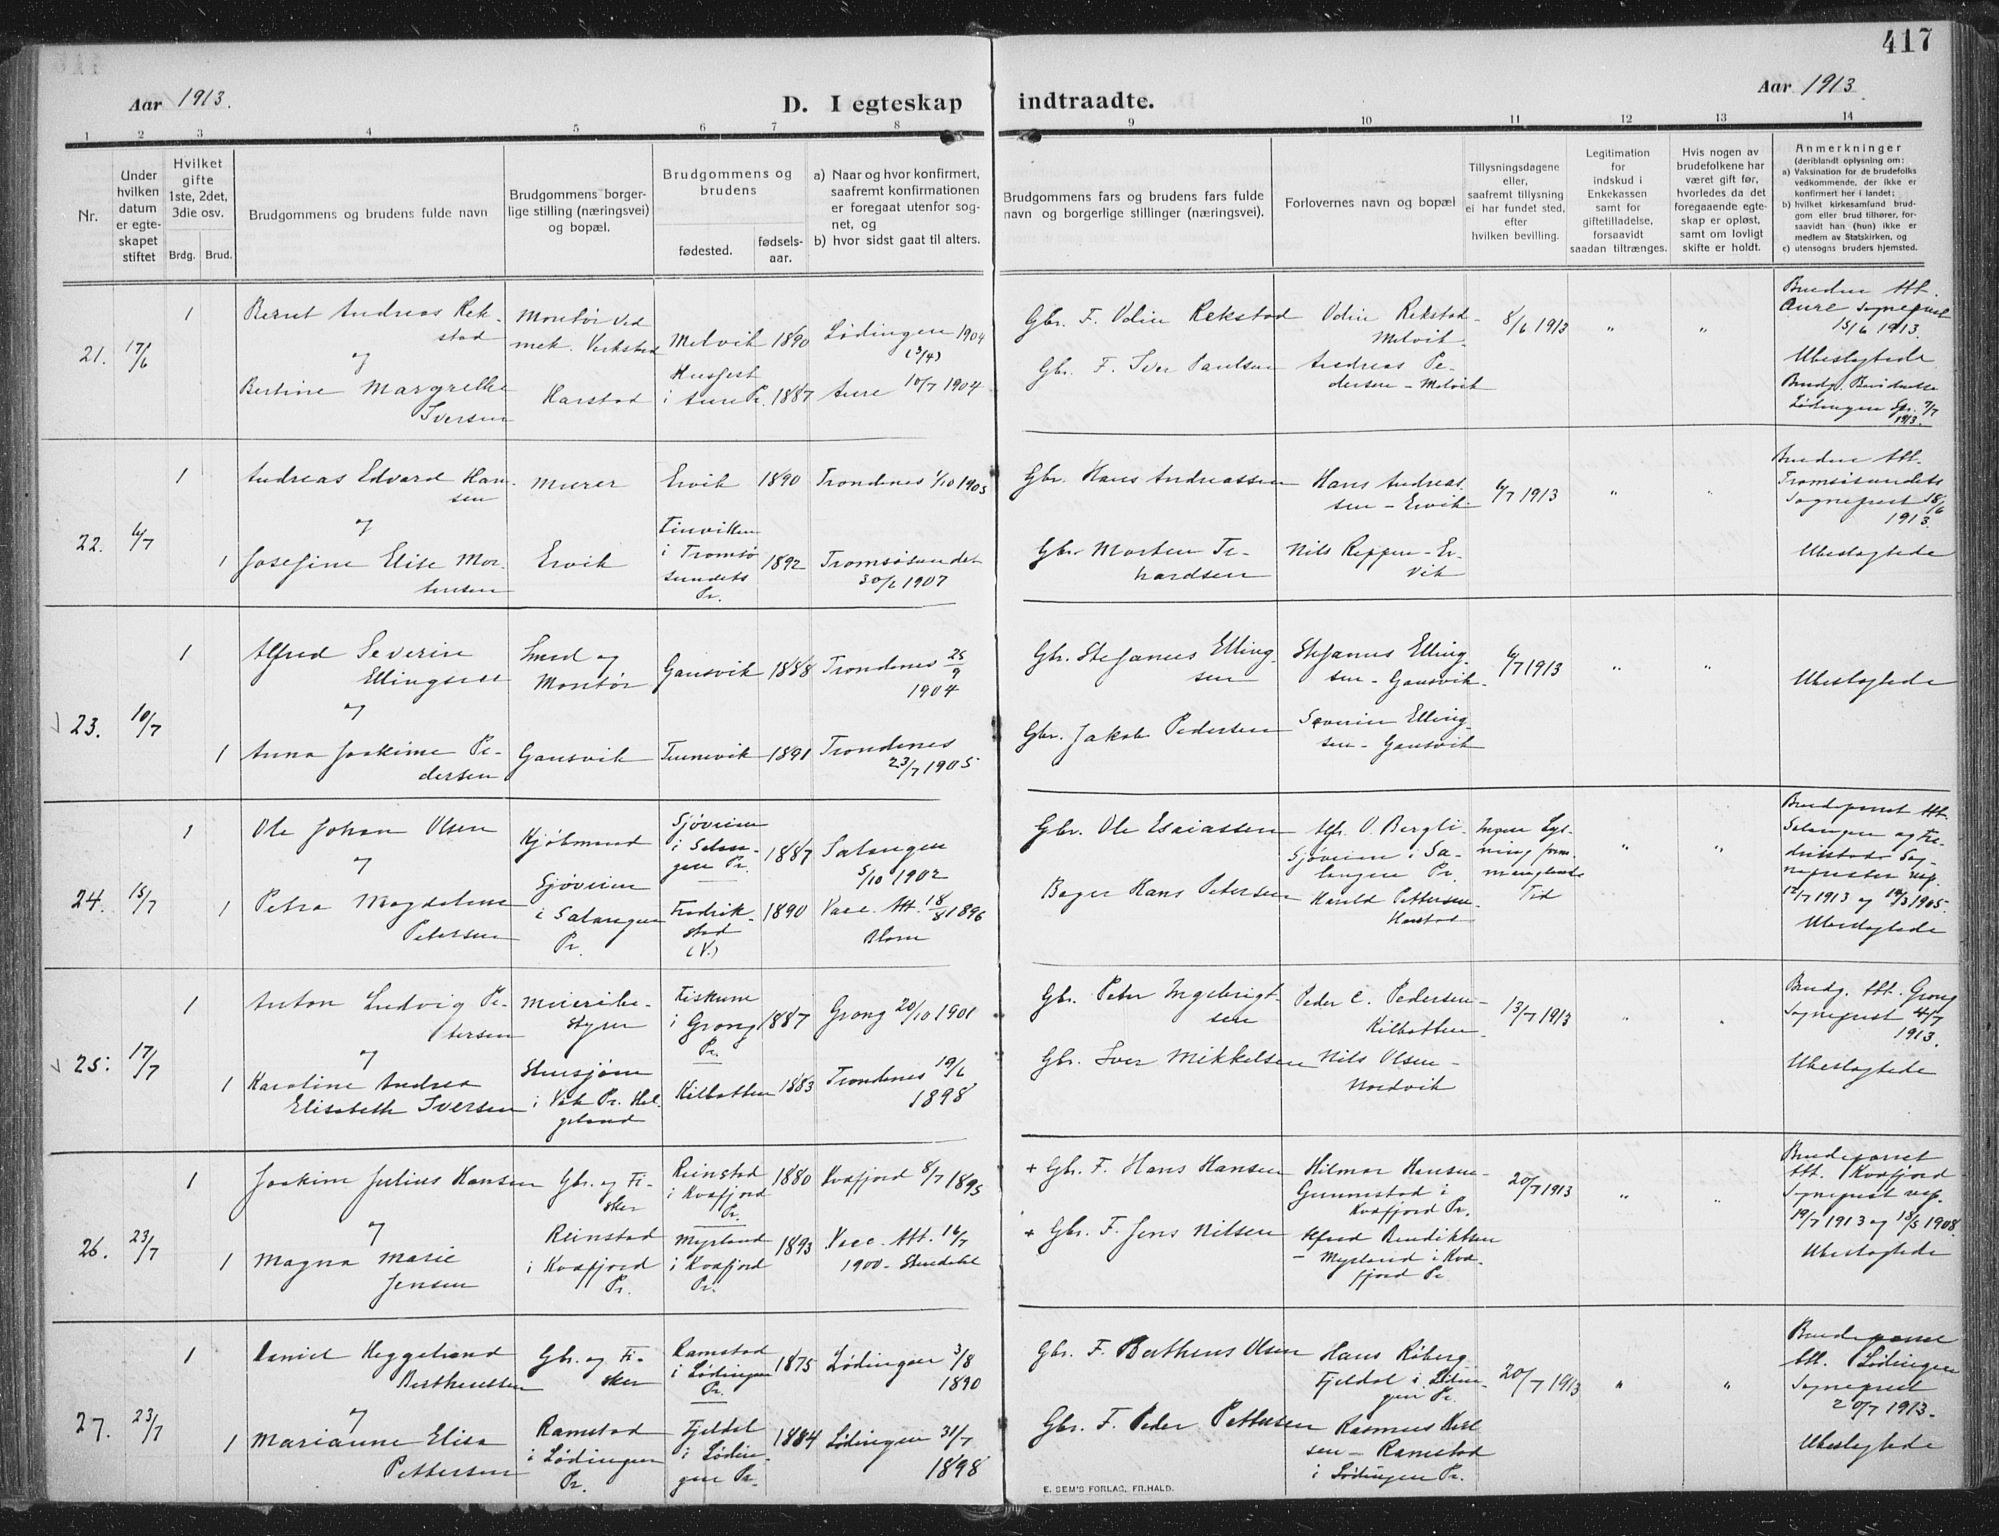 417
Aar 1913.
D. I egteskap indtraadte.
Aar 1913
1 2 3 4 5 6 7 8 9 10 11 12 13 14
Nr.
Under
hvilken
datum
er egte-
skapet
stiftet
Hvilket
gifte
1ste, 2det,
3die osv.
Brdg. Brud.
Brudgommens og brudens fulde navn
Brudgommens borger-
lige stilling (næringsvei)
og bopæl.
Brudgommens og
brudens
fødested.
fødsels-
aar.
a) Naar og hvor konfirmert,
saafremt konfirmationen
er foregaat utenfor sog-
net, og
b) hvor sidst gaat til alters.
Brudgommens fars og brudens fars fulde
navn og borgerlige stillinger (næringsvei).
Forlovernes navn og bopæl
Tillysningsdagene
eller,
saafremt tillysning
ei har fundet sted,
efter
hvilken bevilling.
Legitimation
for
indskud i
Enkekassen
samt for
giftetilladelse,
forsaavidt
saadan tiltrænges.
Hvis nogen av
brudefolkene har
været gift før,
hvorledes da det
foregaaende egte-
skap er opløst,
samt om lovligt
skifte er holdt.
Anmerkninger
(deriblandt oplysning om:
a) Vaksination for de brudefolks
vedkommende, der ikke er
konfirmert her i landet;
b) hvilket kirkesamfund brud-
gom eller brud tilhører, for-
saavidt han (hun) ikke er
medlem av Statskirken, og
c) utensogns bruders hjemsted.
21.
17/6
1
Bernt Andreas Rek-
stad
og
Bertine Margrethe
Iversen
Montør ved
mek. Verksted
Harstad
Melvik 1890
i Aure Pr. 1887
Lødingen 1904
(3/4)
Aure 10/7 1904
Gbr. F. Odin Rekstad
Gbr. F. Iver Paulsen
Odin Rekstad
Melvik.
Andreas Pe-
dersen - Melvik
8/6 1913
" "
Bruden Att.
Aure Sogneprest
15/6 1913.
Ubeslegtede
Lødingen Spr. 7/7
1913.
22.
6/7
1
1
Andreas Edvard Han-
sen
og
Josefine Elise Mor-
tensen
Murer
Ervik
Ervik 1890
Finviken
i Tromsø
sundets
Pr.
1892
Trondenes 1/10 1905
Tromsøsundet
30/6 1907
Gbr. Hans Andreassen
Gbr. Morten Tr-
hardsen
Hans Andreas
sen - Ervik.
Nils Reppen - Er-
vik
6/7 1913
" "
Bruden Att.
Tromsøsundets
Sogneprest 18/6
1913.
Ubeslegtede
23.
10/7
1
1
Alfred Severin
Ellingsen
og
Anna Joakime Pe-
dersen
Smed og
Montør
Gansvik
Gansvik 1888
Tennevik 1891
Trondenes 25/9
1904
Trondenes
23/7 1905
Gbr. Stefanus Elling-
sen
Gbr. Jakob Pedersen
Stefanus Elling-
sen - Gansvik.
Severin Elling-
sen - Gansvik
6/7 1913
" "
Ubeslegtede
24.
15/7
1
1
Ole Johan Olsen
og
Petra Magdalene
Petersen
Kjøbmand
Sjøveien
i Salangen
Pr.
Sjøveien
i Salan-
gen Pr.
1887
Fredrik-
stad
(V.)
1890
Salangen
5/10 1902
Vacc. Att. 18/8 1896
Blom
Gbr. Ole Esaiassen
Bager Hans Petersen
Alfr. O. Bergli-
Sjøveien i Sa-
langen Pr.
Harald Pettersen-
Harstad
Ingen Lys-
ning form.
manglende
Tid
" "
Brudeparret Att.
Salangen og Fre-
drikstads Sog-
neprester resp.
12/7 1913 og 14/3 1905.
Ubeslegtede
25.
17/7
1
1
Anton Ludvig Pe-
tersen
og
Karoline Andrea
Elisabeth Iversen
Meieribe-
styrer
i Vek Pr. Hel-
geland
Fiskum
i Grong
Pr.
1887
Kilbotten 1883
Grong 20/10 1901
Trondenes 19/6
1898
Gbr. Peter Ingebrigt-
sen
Gbr. Iver Mikkelsen
Peder C. Pedersen-
Kilbotten
Nils Olsen-
Nordvik
13/7 1913
" "
Brudg. Att. Grong
Sogneprest 4/7
1913.
Ubeslegtede
26.
23/7
1
1
Joakim Julius Hansen
og
Magna Marie
Jensen
Gbr. og Fi-
sker
Reinstad
i Kvæfjord
Pr.
Reinstad
i Kvæfjord
Pr.
1880
Myrland
i Kvæfjord
Pr.
1893
Kvæfjord 8/7 1895
Vacc. Att. 16/7
1900 -
+ Gbr. F. Hans Hansen
+ Gbr. F. Jens Nilsen
Hilmar Hansen-
Gunnestad i
Kvæfjord Pr.
Alfred Bendiktsen
- Myrland i Kvæ-
fjord Pr
20/7 1913
" "
Brudeparret
Att. Kvæfjord
Sogneprest resp.
19/7 1913 og 18/5 1908.
Ubeslegtede
27.
23/7
1
1
Daniel Heggelund
Berthensen
og
Marianne Elisa
Pettersen
Gbr. og Fi-
sker
Ramstad
i Lødingen
Pr.
Ramstad
i Lødingen
Pr.
1875
Fjeldal
i Lødin-
gen Pr.
1884
Lødingen 3/8
1890
Lødingen 31/7
1898
Gbr. F. Berthens Olsen
Gbr. F. Peder Pettersen
Hans Røberg
Fjeldal i Lødin-
gen Pr.
Rasmus Karl
sen - Ramstad
i Lødingen Pr.
20/7 1913
" "
Brudeparret
Att. Lødingen
Sogneprest
20/7 1913.
Ubeslegtede
E. SEM'S FORLAG, FR.HALD.